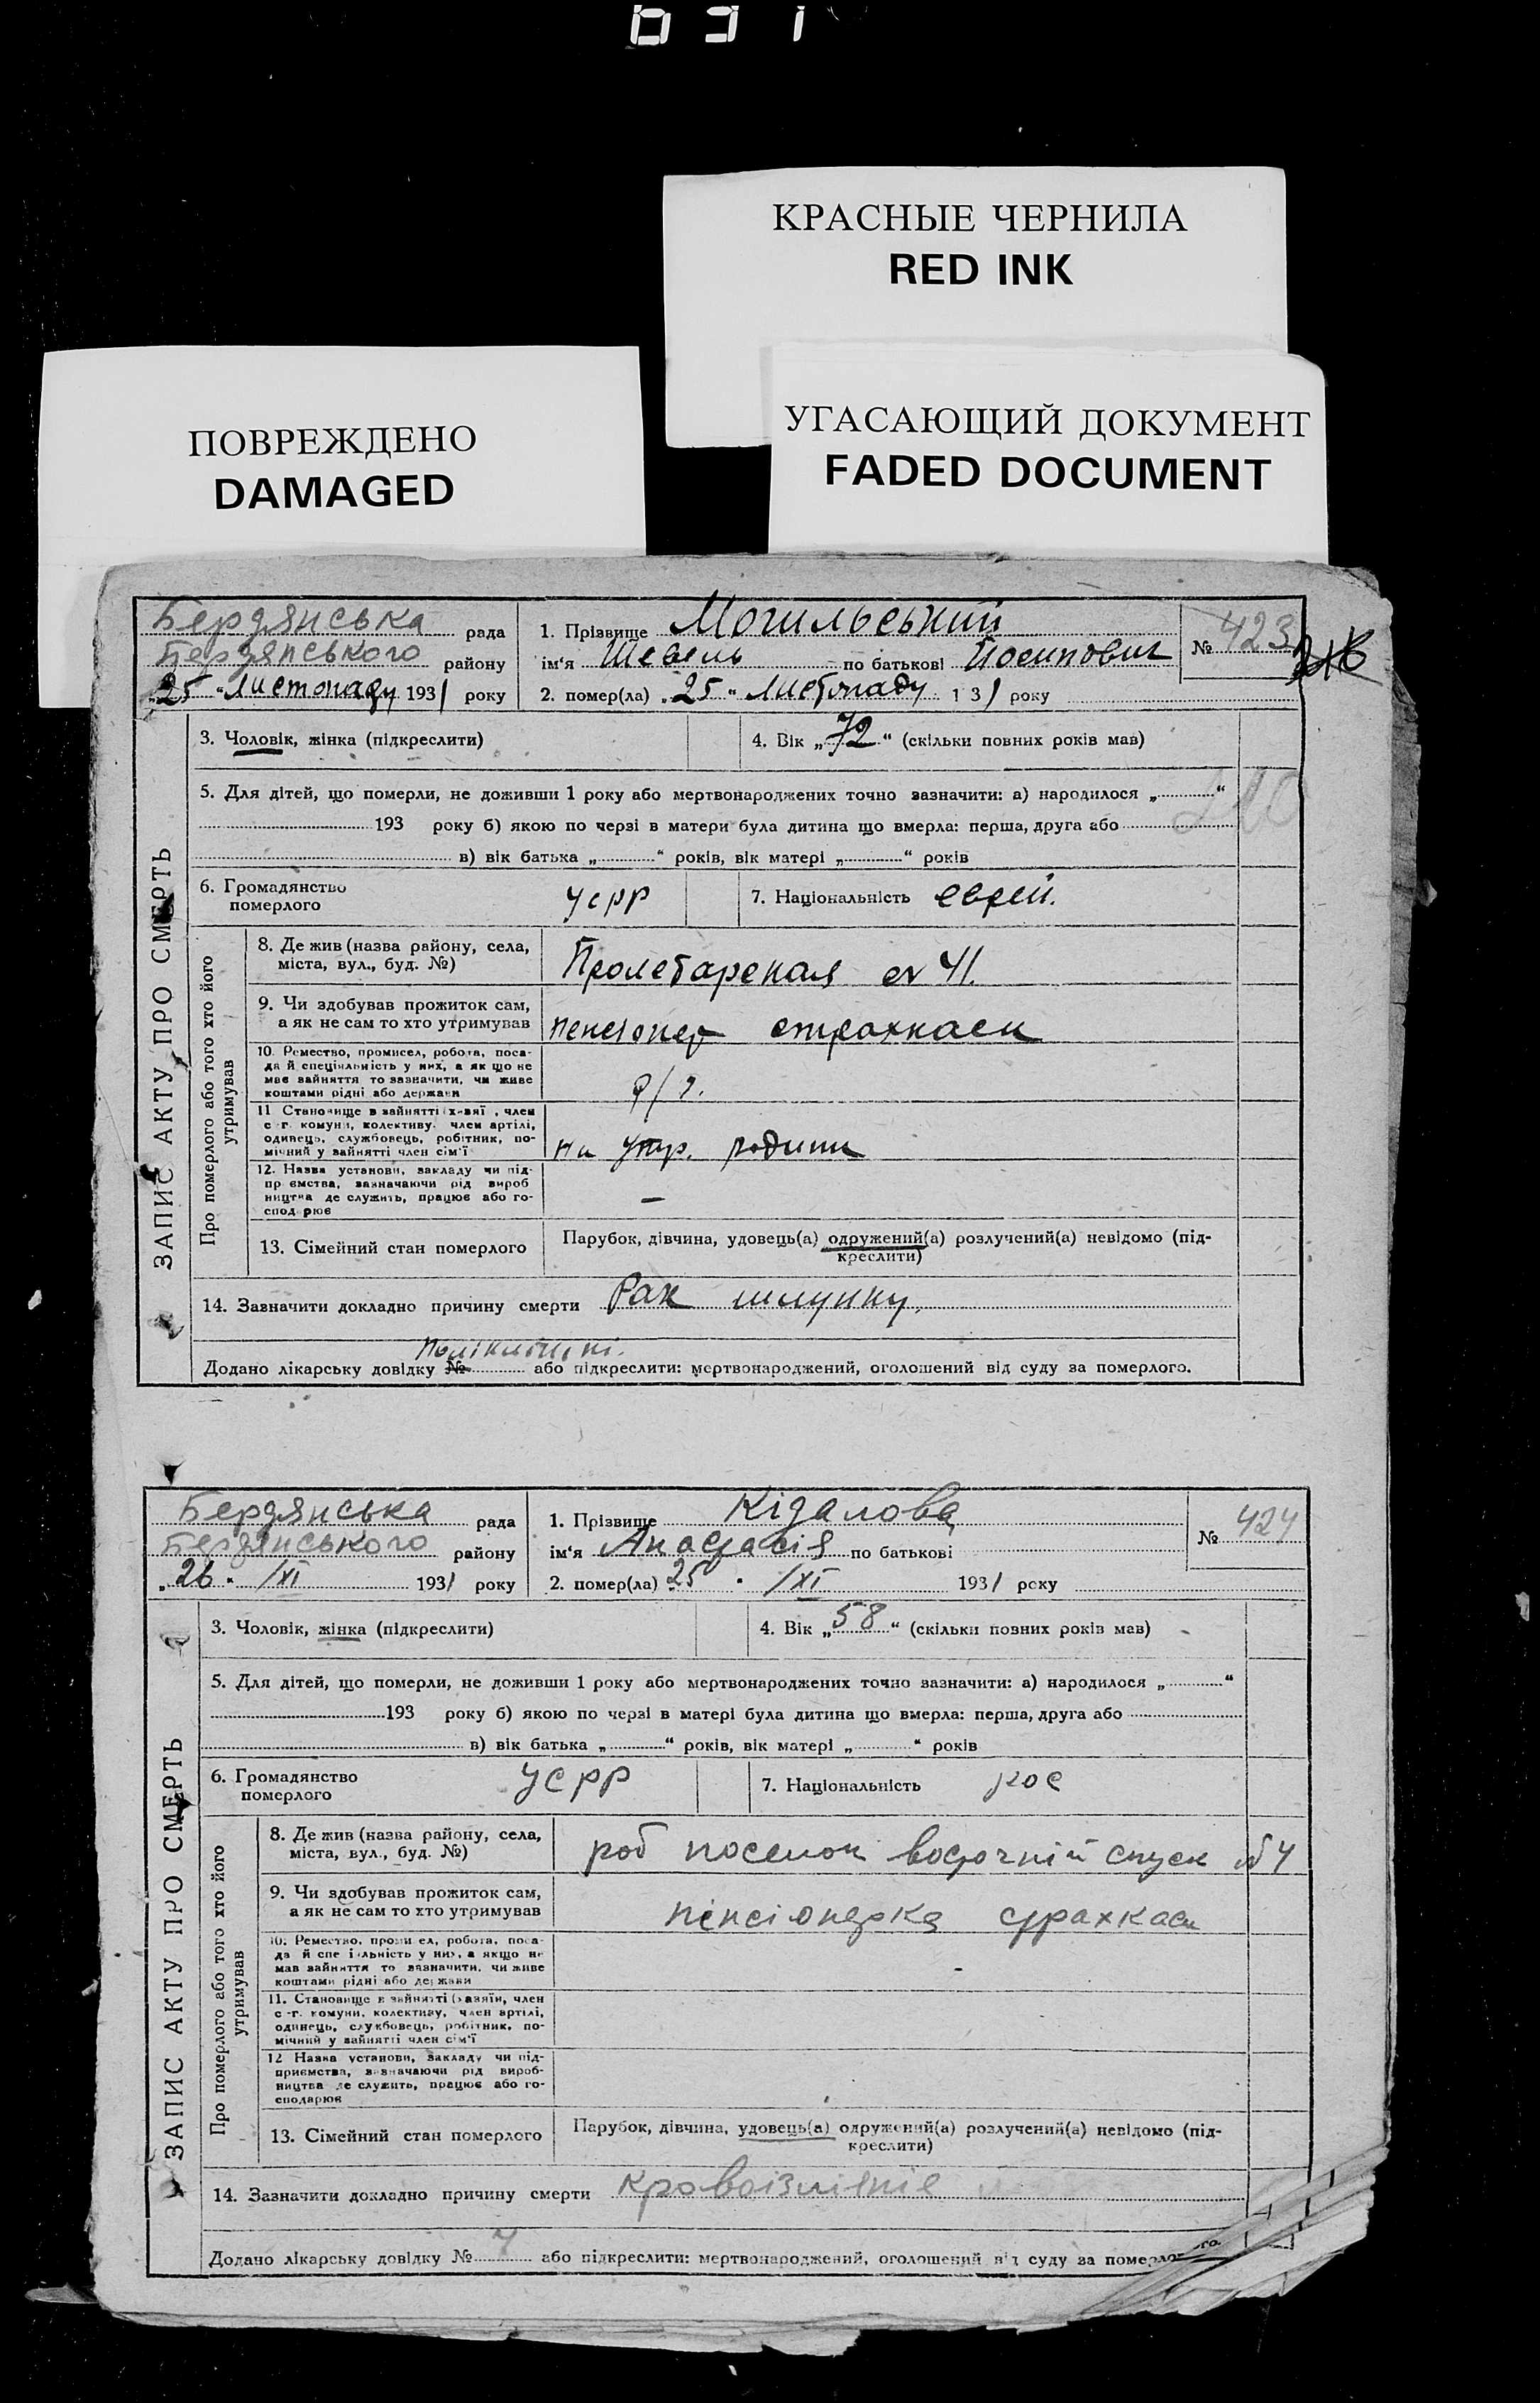 КРАСНЫЕ ЧЕРНИЛА
RED INK
ПОВРЕЖДЕНО
DAMAGED
УГАСАЮЩИЙ ДОКУМЕНТ
FADED DOCUMENT
Бердянська рада
Бердянського району
„25“ Листопаду 1931 року
1. Прізвище Могильський
ім‘я Шевель по батькові Йосипович
2. помер(ла) „25“ Листопаду 1 31 року
№ 423
ЗАПИС АКТУ ПРО СМЕРТЬ
3. Чоловік, жінка (підкреслити)
4. Вік „72“ (скільки повних років мав)
5. Для дітей, що померли, не доживши 1 року або мертвонароджених точно зазначити: а) народилося „ “
193 року б) якою по черзі в матери була дитина що вмерла: перша, друга або
в) вік батька „ “ років, вік матері „ “ років
210
6. Громадянство померлого УСРР
7. Національність еврей.
Про померлого або того хто його утримував
8. Де жив (назва району, села, міста, вул., буд. №) Пролетарская № 41.
9. Чи здобував прожиток сам, а як не сам то хто утримував пенсіонер страхкаси
10. Ремество, промисел, робота, поса-
да й спеціяльність у них, а як що не
має зайняття то зазначити, чи живе
коштами рідні або держави
11 Становище в зайнятті (хазяї , член
с -г. комуни, колективу, член артілі,
одинець, службовець, робітник, по-
мічний у зайнятті член сім‘ї
на утр. родини
12. Назва установи, закладу чи під-
пр ємства, зазначаючи рід вироб
ництва де служить, працює або го-
спод рює
—
13. Сімейний стан померлого
Парубок, дівчина, удовець(а) одружений(а) розлучений(а) невідомо (під-
креслити)
14. Зазначити докладно причину смерти Рак шлунку.
Поліклініки.
Додано лікарську довідку № або підкреслити: мертвонароджений, оголошений від суду за померлого.
Бердянська рада
Бердянського району
„26“ /XI 1931 року
1. Прізвище Кідалова
ім‘я Анастасія по батькові
2. помер(ла) 25 “ /XI 1931 року
№ 424
ЗАПИС АКТУ ПРО СМЕРТЬ
3. Чоловік, жінка (підкреслити)
4. Вік „58“ (скільки повних років мав)
5. Для дітей, що померли, не доживши 1 року або мертвонароджених точно зазначити: а) народилося „ “
193 року б) якою по черзі в матері була дитина що вмерла: перша, друга або
в) вік батька „ “ років, вік матері „ “ років
6. Громадянство померлого УСРР
7. Національність рос
Про померлого або того хто його утримував
8. Де жив (назва району, села, міста, вул., буд. №) роб поселок восточній спуск № 4
9. Чи здобував прожиток сам, а як не сам то хто утримував пенсіонерка страхкаси
10. Ремество, проми ел, робота, поса-
да й спе і льність у них, а якщо не
мав зайняття то зазначити, чи живе
коштами рідні або держави
-
11. Становище в зайнятті (хазяїн, член
с -г. комуни, колективу, член артілі,
одинець, службовець, робітник, по-
мічний у зайнятті член сім‘ї
12 Назва установи, закладу чи під-
приємства, зазначаючи рід вироб-
ництва де служить, працює або го-
сподарює
13. Сімейний стан померлого
Парубок, дівчина, удовець(а) одружений(а) розлучений(а) невідомо (під-
креслити)
14. Зазначити докладно причину смерти кровоізліяніє
Додано лікарську довідку № 4 або підкреслити: мертвонароджений, оголошений від суду за померлого.